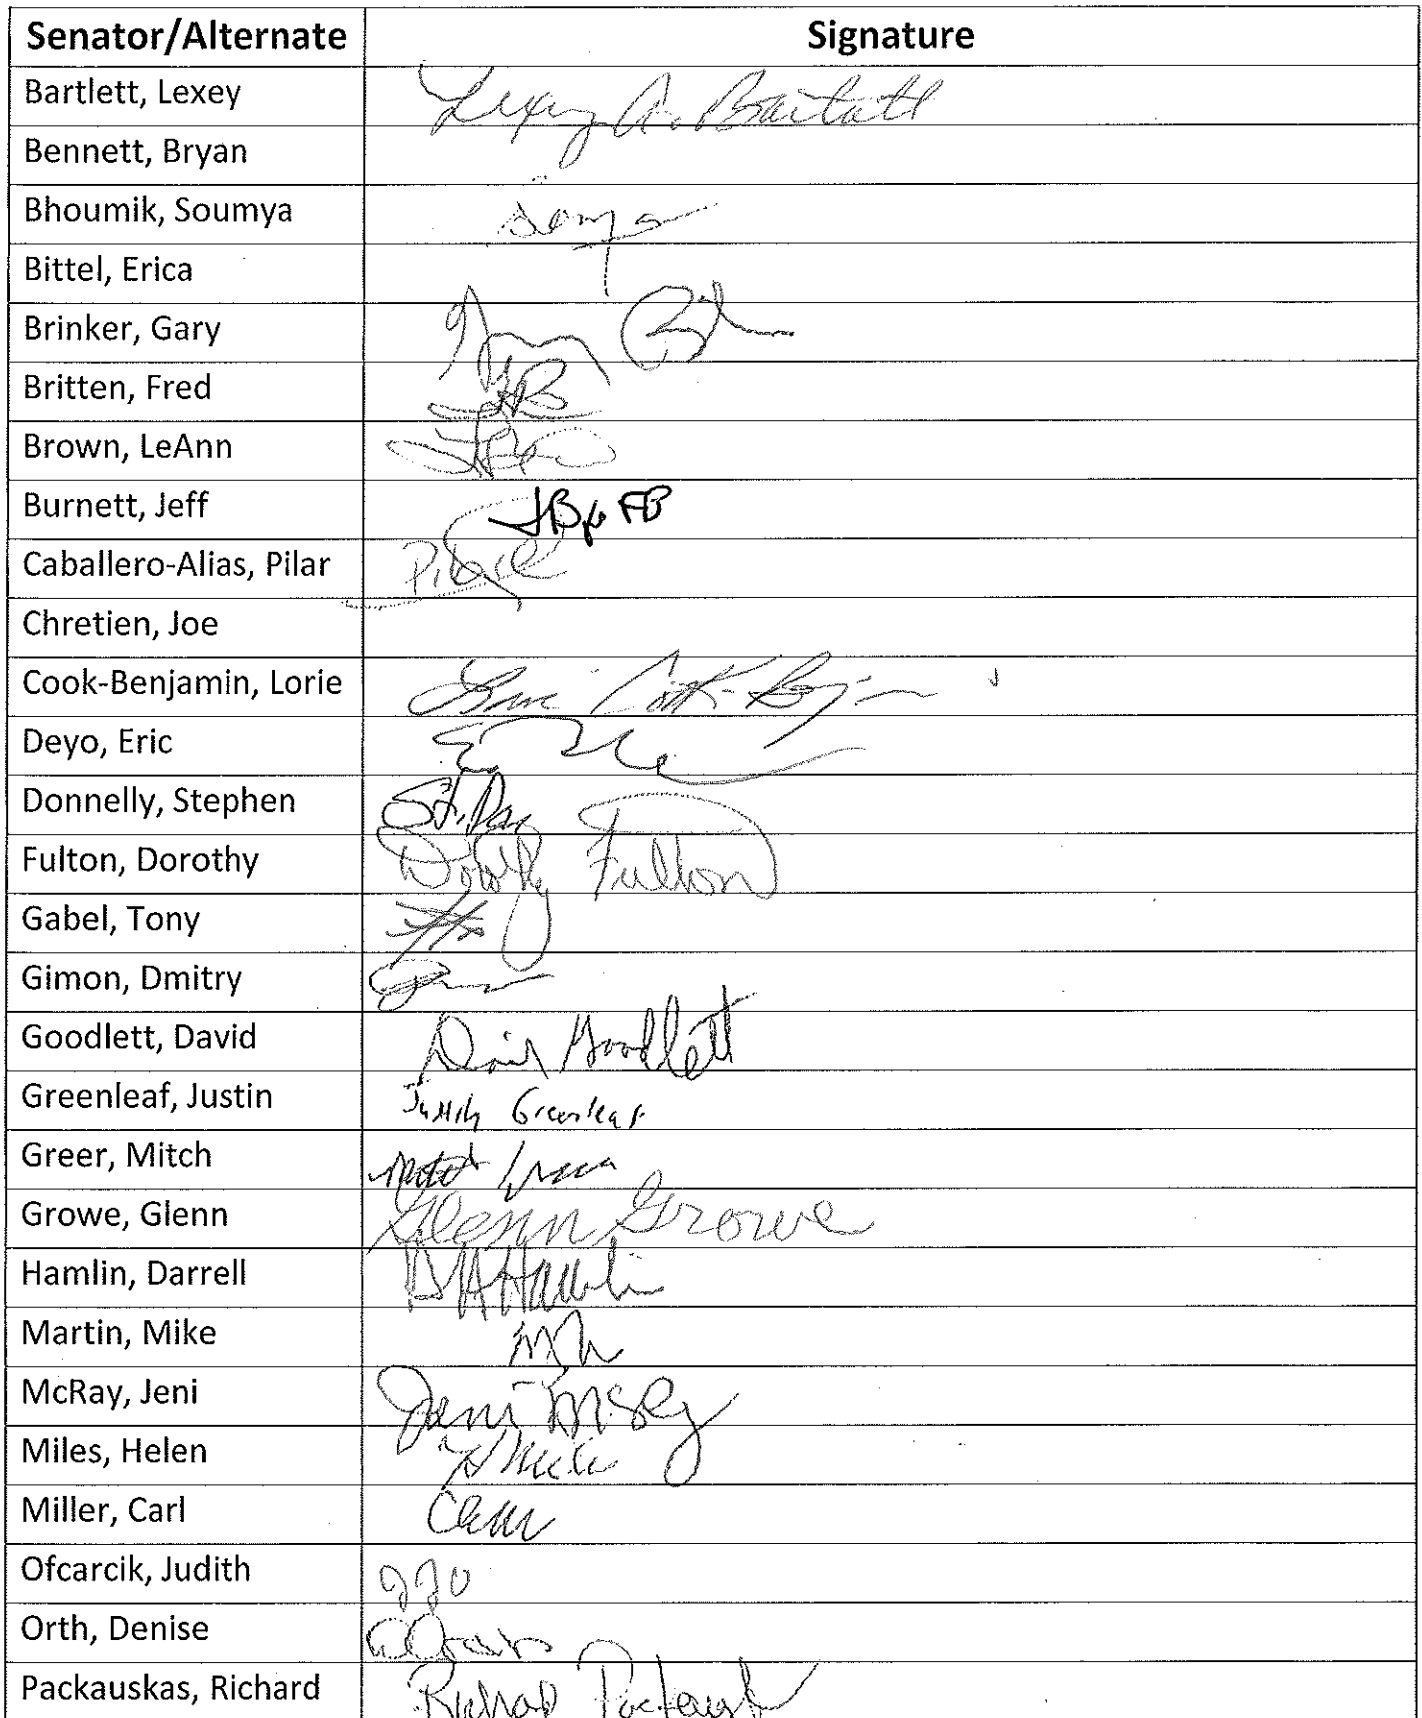 Senator/Alternate Signature
Bartlett, Lexey Lexey A. Bartlett
Bennett, Bryan
Bhoumik, Soumya
Bittel, Erica
Brinker, Gary
Britten, Fred
Brown, LeAnn
Burnett, Jeff JB for FB
Caballero-Alias, Pilar
Chretien, Joe
Cook-Benjamin, Lorie
Deyo, Eric
Donnelly, Stephen
Fulton, Dorothy Dorothy Fulton
Gabel, Tony
Gimon, Dmitry
Goodlett, David David Goodlett
Greenleaf, Justin Justin Greenleaf
Greer, Mitch
Growe, Glenn Glenn Growe
Hamlin, Darrell DA Hamlin
Martin, Mike
McRay, Jeni Jeni McRay
Miles, Helen H Miles
Miller, Carl
Ofcarcik, Judith JJO
Orth, Denise
Packauskas, Richard Richard Packauskas